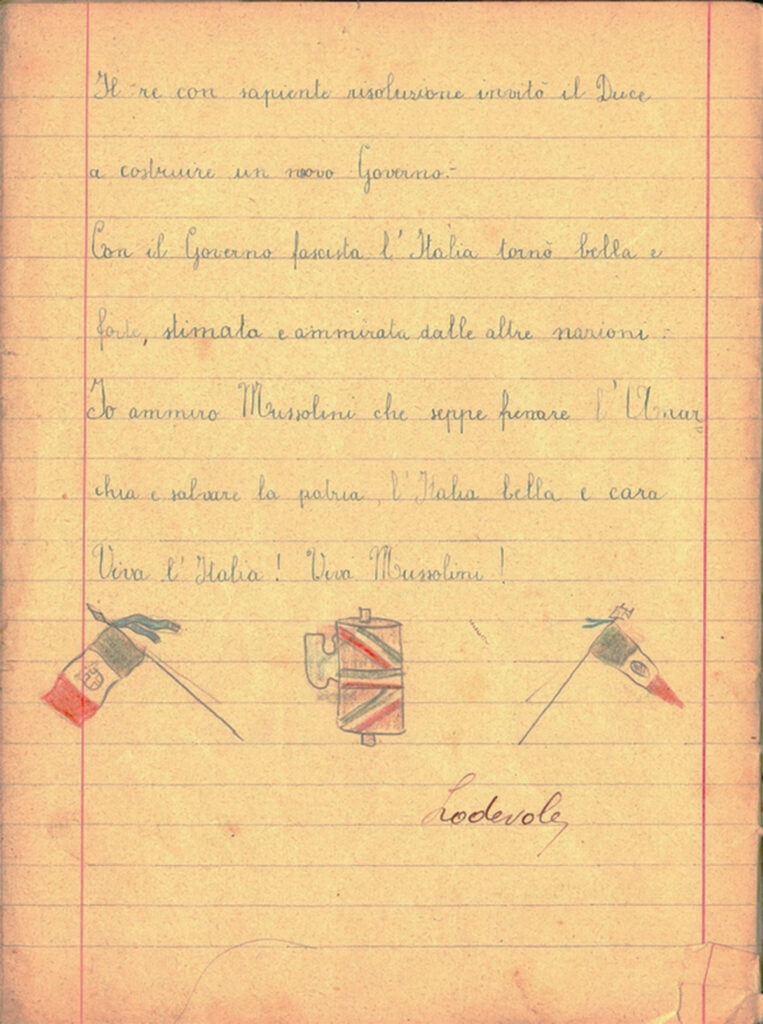 Il re con sapiente risoluzione invitò il Duce
a costruire un novo Governo.-
Con il Governo fascista l'Italia tornò bella e
forte, stimata e ammirata dalle altre nazioni.-
Io ammiro Mussolini che seppe frenare l'Anar
chia e salvare la patria, l'Italia bella e cara
Viva l'Italia! Viva Mussolini!
Lodevole